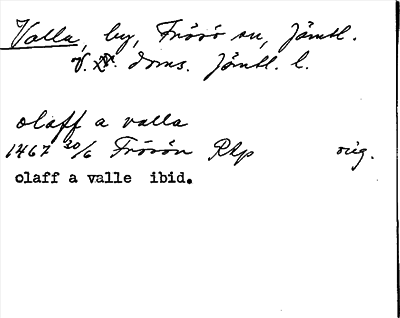 Valla, by, Frösö sn, Jämtl.
V. doms. Jämtl. l.
olaff a valla
1467 30/6 Frösön Rkp orig.
olaff a valle ibid.